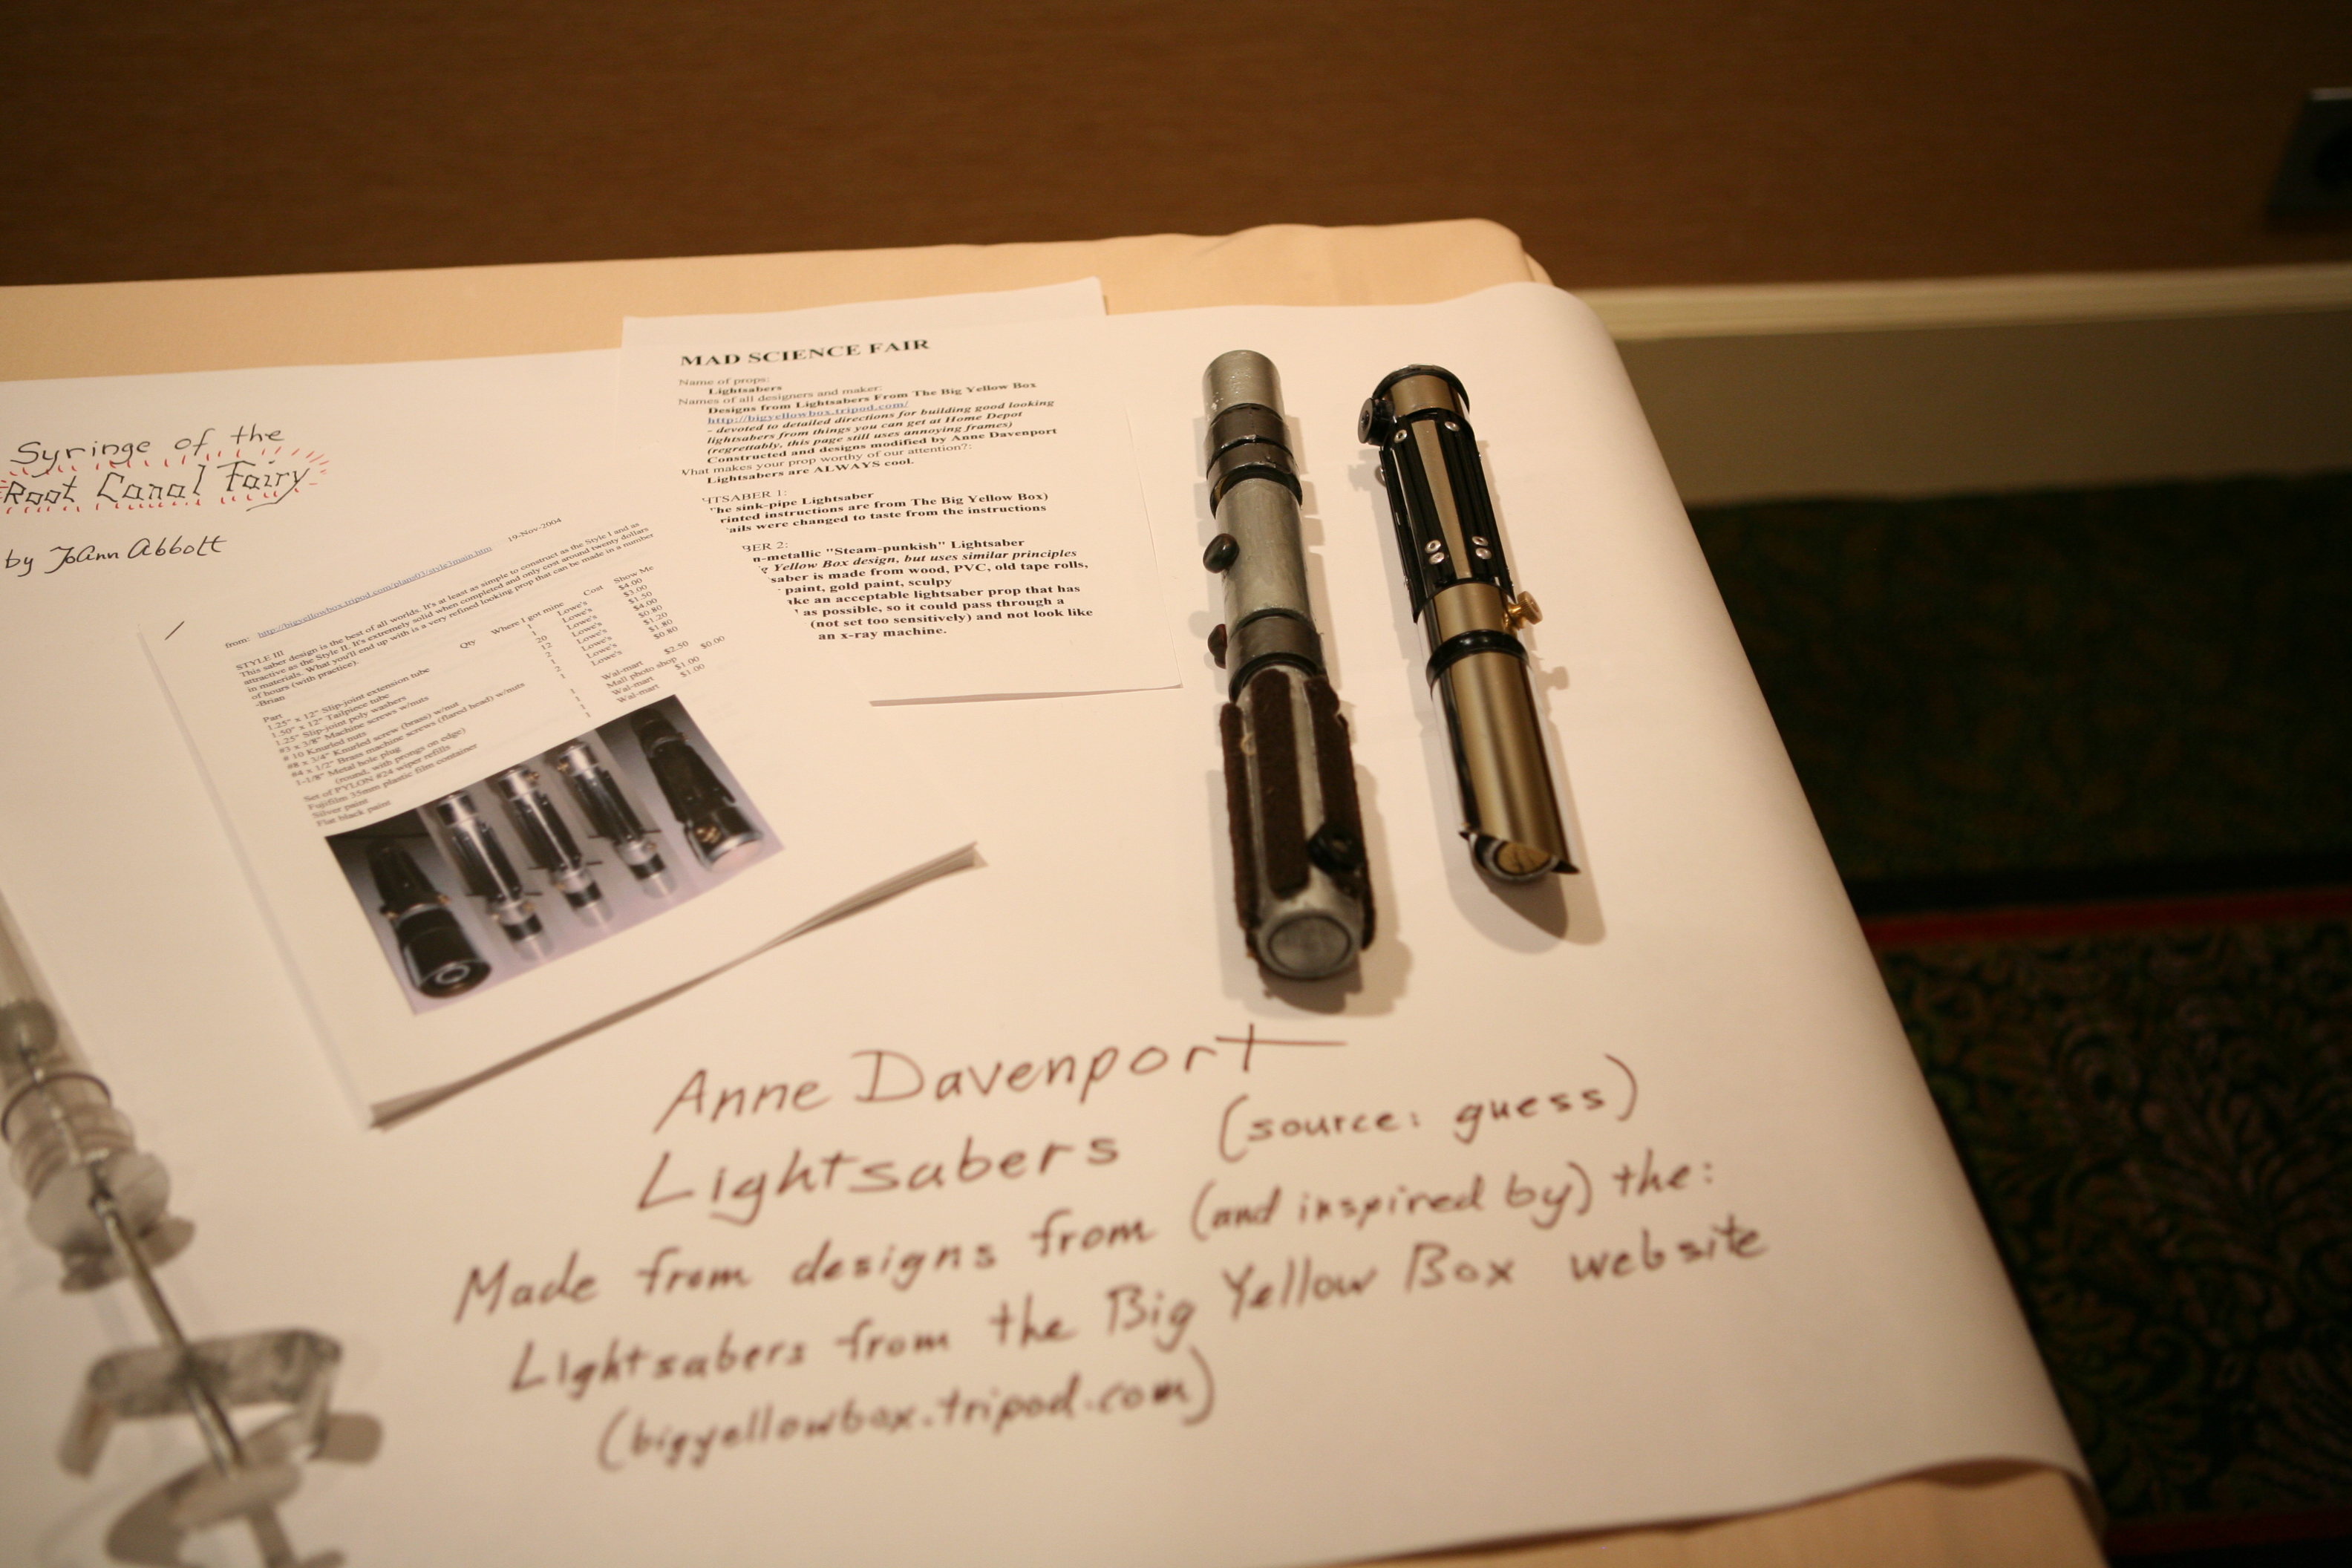 Syringe of the
Root Canal Fairy
by JoAnn Abbott
MAD SCIENCE FAIR
Name of props:
Lightsabers
Names of all designers and maker:
Designs from Lightsabers From The Big Yellow Box
http://bigyellowbox.tripod.com/
- devoted to detailed directions for building good looking
lightsabers from things you can get at Home Depot
(regrettably, this page still uses annoying frames)
Constructed and designs modified by Anne Davenport
What makes your prop worthy of our attention?:
Lightsabers are ALWAYS cool.
HTSABER 1:
he sink-pipe Lightsaber
rinted instructions are from The Big Yellow Box)
ails were changed to taste from the instructions
BER 2:
n-metallic "Steam-punkish" Lightsaber
ig Yellow Box design, but uses similar principles
saber is made from wood, PVC, old tape rolls,
paint, gold paint, sculpy
ake an acceptable lightsaber prop that has
as possible, so it could pass through a
(not set too sensitively) and not look like
an x-ray machine.
19-Nov-2004
from: http://bigyellowbox.tripod.com/plans03/style3main.htm
STYLE III
This saber design is the best of all worlds. It's at least as simple to construct as the Style I and as
attractive as the Style II. It's extremely solid when completed and only cost around twenty dollars
in materials. What you'll end up with is a very refined looking prop that can be made in a number
of hours (with practice).
-Brian
Part Qty Where I got mine Cost Show Me
1.25" x 12" Slip-joint extension tube 1 Lowe's $4.00
1.50" x 12" Tailpiece tube 1 Lowe's $3.00
1.25" Slip-joint poly washers Lowe's $1.50
#3 x 3/8" Machine screws w/nuts 20 Lowe's $4.00
# 10 Knurled nuts 12 Lowe's $0.80
#8 x 3/4" Knurled screw (brass) w/nut Lowe's $1.20
#4 x 1/2" Brass machine screws (flared head) w/nuts 2 Lowe's $1.80
1-1/8" Metal hole plug 1 Lowe's $0.80
(round, with prongs on edge)
Set of PYLON #24 wiper refills 1 Wal-mart $2.50
Fujifilm 35mm plastic film container 1 Mall photo shop $0.00
Silver paint 1 Wal-mart $1.00
Flat black paint 1 Wal-mart $1.00
Anne Davenport
Lightsabers (source: guess)
Made from designs from (and inspired by) the:
Lightsabers from the Big Yellow Box website
(bigyellowbox.tripod.com)